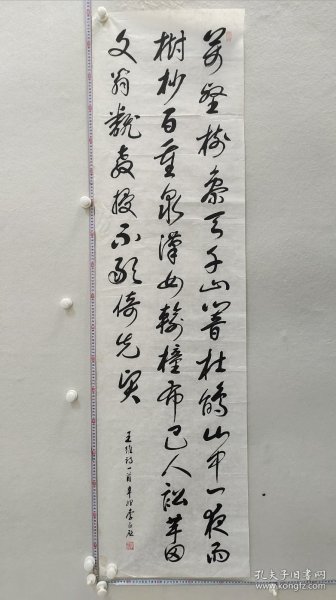 万壑树参天千山响杜鹃山中一夜雨
树杪百重泉汉女输橦布巴人讼芋田
文翁翻教授不敢倚先贤
王维诗一首辛卯李
孔夫子旧书网